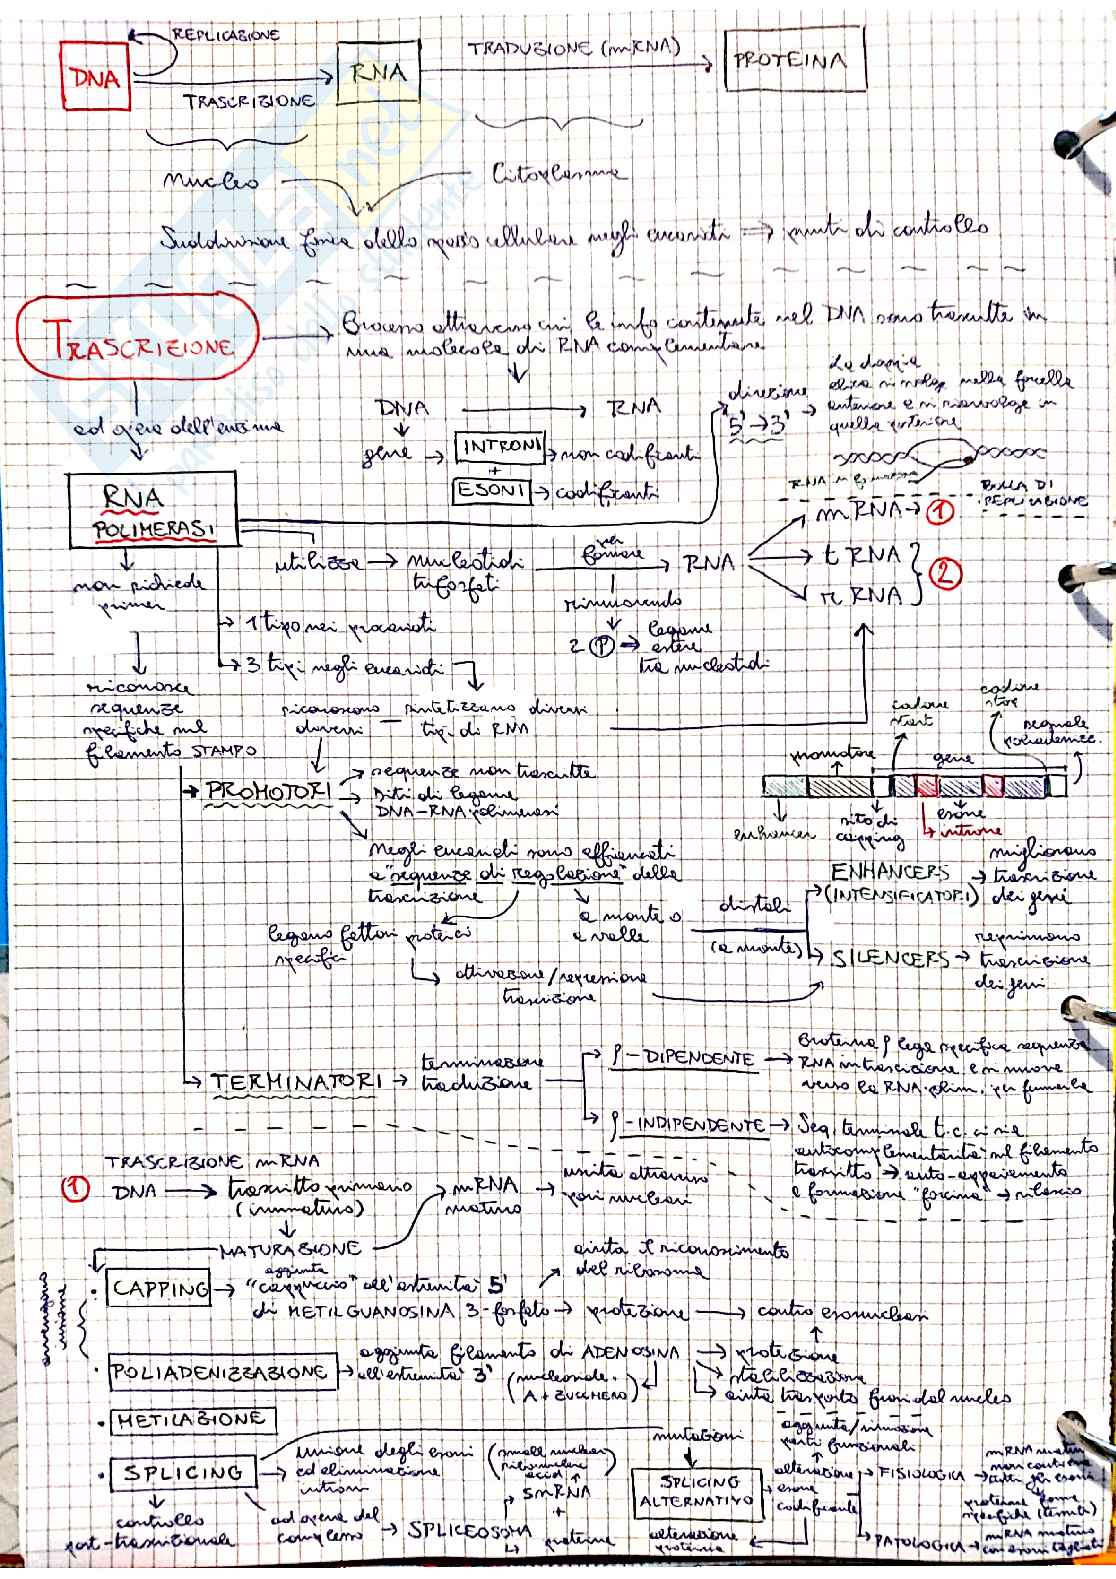 REPLICAZIONE
DNA
TRASCRIZIONE
RNA
TRADUZIONE (mRNA)
PROTEINA
nucleo
Citoplasma
Suddivisione fisica dello spazio cellulare negli eucarioti ⇒ punti di controllo
TRASCRIZIONE
Processo attraverso cui le info contenute nel DNA sono trascritte in
una molecola di RNA complementare
ad opera dell'enzima
DNA → RNA
gene → INTRONI → non codificanti
+
ESONI → codificanti
direzione
5' → 3'
La doppia
elica si svolge nella forcella
anteriore e si riavvolge in
quella posteriore
RNA in formazione
BOLLA DI
REPLICAZIONE
RNA
POLIMERASI
non richiede
primer
utilizza → nucleotidi
trifosfati
per
formare
RNA
mRNA → 1
tRNA
rRNA
2
rimuovendo
2 P ⇒ legame
estere
tra nucleotidi
→ 1 tipo nei procarioti
→ 3 tipi negli eucarioti
riconosce
sequenze
specifiche sul
filamento STAMPO
riconoscono
diversi
sintetizzano diversi
tipi di RNA
→ PROMOTORI
sequenze non trascritte
siti di legame
DNA-RNA polimerasi
codone
start
codone
stop
segnale
poliadeniz.
promotore
gene
enhancer
sito di
capping
esone
introne
negli eucarioti sono affiancati
a "sequenze di regolazione" della
trascrizione
legano fattori proteici
specifici
a monte o
a valle
distali
(a monte)
ENHANCERS
(INTENSIFICATORI)
migliorano
trascrizione
dei geni
SILENCERS →
reprimono
trascrizione
dei geni
attivazione/repressione
trascrizione
→ TERMINATORI →
terminazione
traduzione
ρ-DIPENDENTE →
Proteina ρ lega specifica sequenza
RNA in trascrizione e si muove
verso la RNA-polim. per fermarla
ρ-INDIPENDENTE →
Seq. terminale t.c. ci sia
autocomplementarità sul filamento
trascritto → auto-appaiamento
e formazione "forcina" → rilascio
TRASCRIZIONE mRNA
1 DNA → trascritto primario
(immaturo)
mRNA
maturo
→ uscita attraverso
pori nucleari
MATURAZIONE
avvengono
insieme
• CAPPING →
aggiunta
"cappuccio" all'estremità 5'
di METILGUANOSINA 3-fosfato → protezione → contro esonucleasi
aiuta il riconoscimento
del ribosoma
• POLIADENIZZAZIONE →
aggiunta filamento di ADENOSINA
all'estremità 3'
(nucleoside.
A + ZUCCHERO)
→ protezione
→ stabilizzazione
→ aiuta trasporto fuori dal nucleo
• METILAZIONE
• SPLICING →
unione degli esoni
ed eliminazione
introni
controllo
post-trascrizionale
ad opera del
complesso → SPLICEOSOMA
(small nuclear
ribonucleic
acid)
snRNA
+
proteine
mutazioni
SPLICING
ALTERNATIVO
alterazione
proteina
aggiunta/rimozione
parti funzionali
alterazione
esone
codificante
→ FISIOLOGICA →
mRNA maturo
non contiene
tutti gli esoni
proteine
specifiche (tessuti)
→ PATOLOGICA →
mRNA maturo
con esoni tagliati